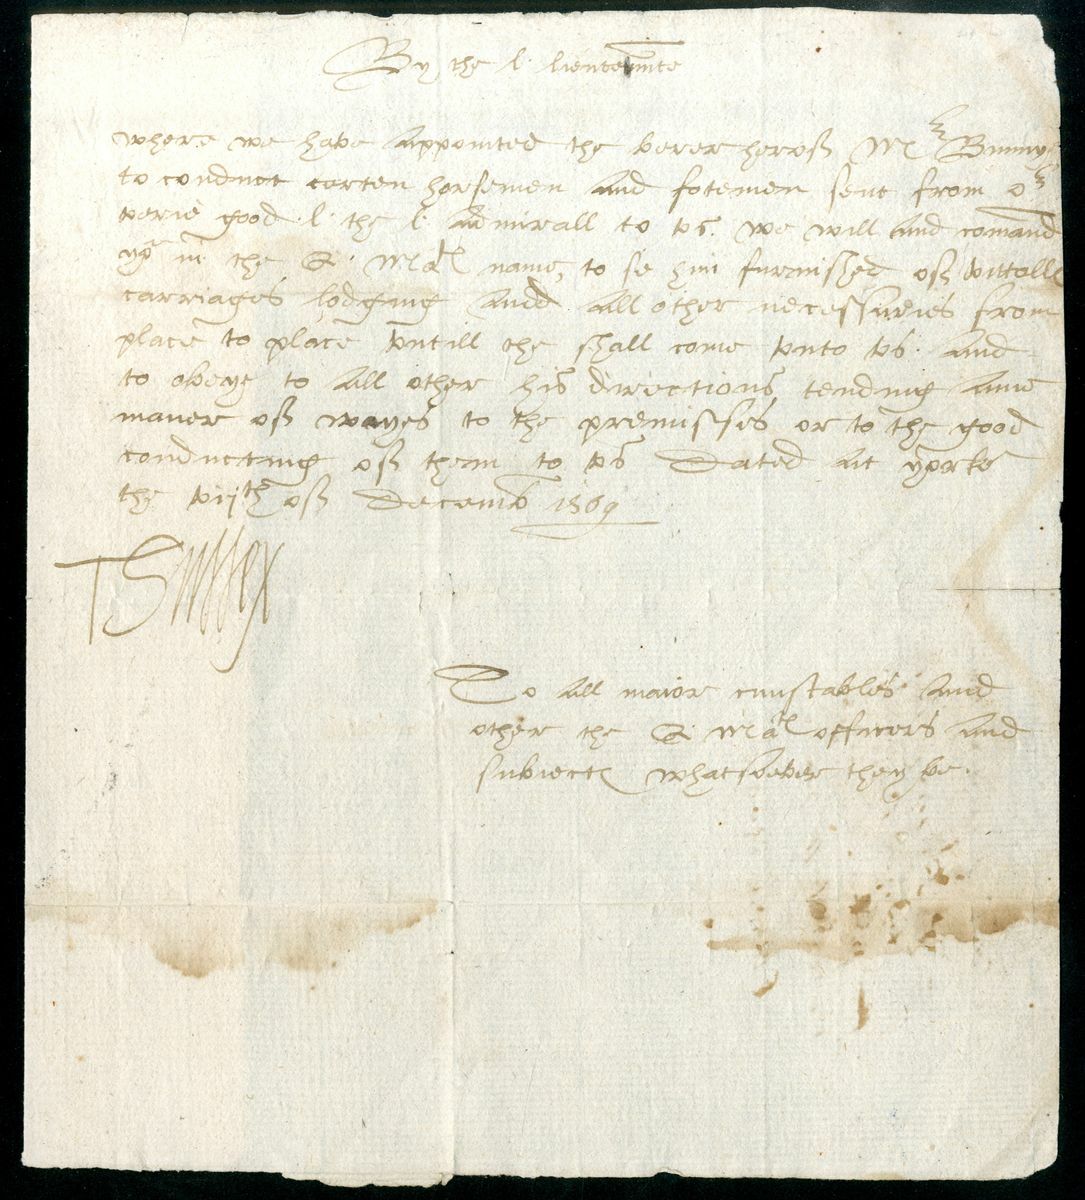 By the l. lieutennte
where we have appointed the berer herof Mr Bunny
to conduct certen horsemen and fotemen sent from or
verie good l. the l. Admirall to vs. we will and comand
yo in the Q. Mats name, to se him furnished of vittalls
carriages lodging and all other necessaries from
place to place vntill the shall come vnto vs. and
to obeye to all other his directions tending anie
maner of wayes to the premisses or to the good
conducting of them to vs Dated at yorke
the vijth of Decemb 1569
T Sussex
To all maior cunstables and
other the Q. Mats officers and
subiects whatsoever they be.